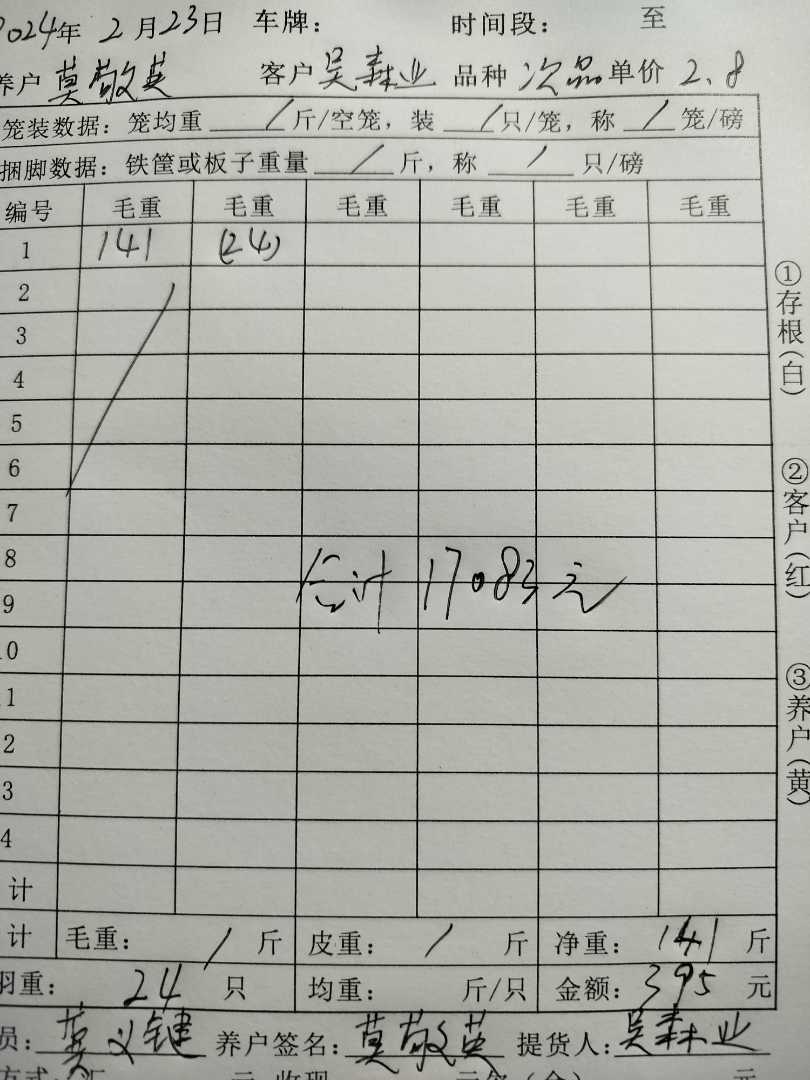 2024年 2月23日 车牌： 时间段： 至
养户 莫敬英 客户 吴森业 品种 次品 单价 2.8
笼装数据：笼均重 / 斤/空笼，装 / 只/笼，称 / 笼/磅
捆脚数据：铁筐或板子重量 / 斤，称 / 只/磅
编号 毛重 毛重 毛重 毛重 毛重 毛重
1 141 (24)
2
3
4
5
6
7
8
9
0
1
2
3
4
计
合计 17083元
计 毛重： / 斤 皮重： / 斤 净重： 141 斤
羽重： 24 只 均重： 斤/只 金额： 395 元
员：莫义键 养户签名：莫敬英 提货人：吴森业
①存根(白)
②客户(红)
③养户(黄